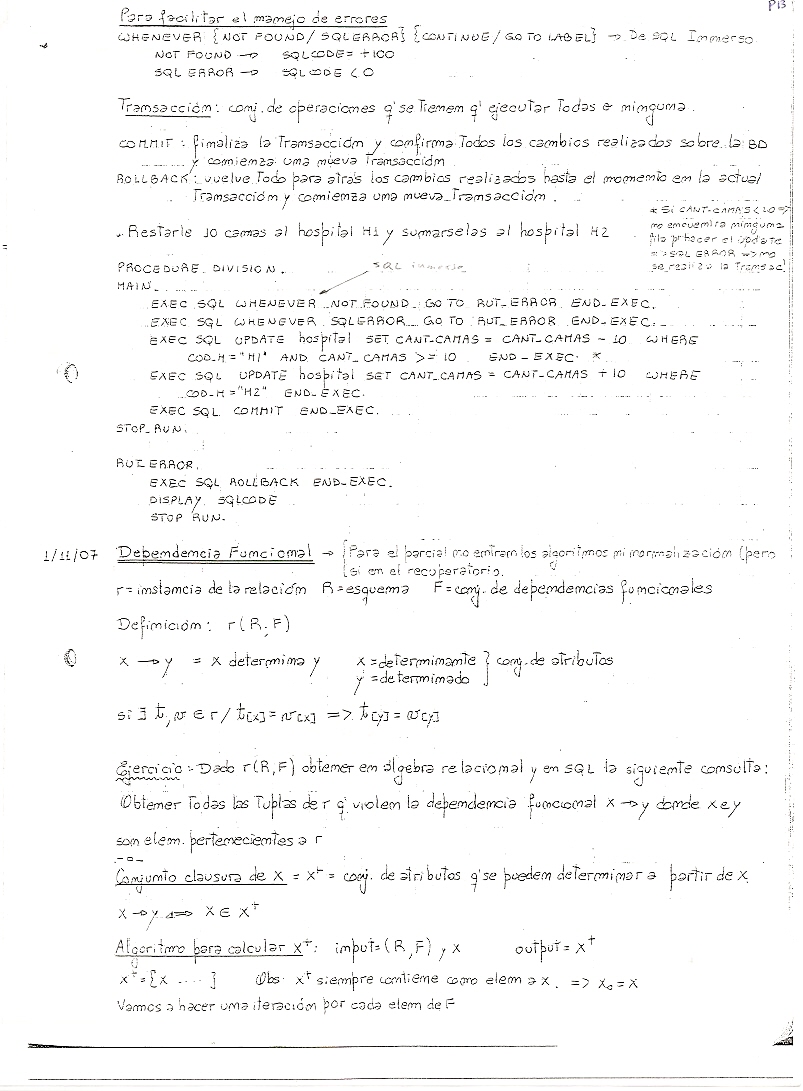 P13
Para facilitar el manejo de errores
WHENEVER {NOT FOUND / SQLERROR} {CONTINUE / GO TO LABEL} → De SQL Inmerso
NOT FOUND → SQLCODE = +100
SQL ERROR → SQLCODE < 0
Transacción: conj. de operaciones q' se tienen q' ejecutar todas o ninguna.
COMMIT: finaliza la transacción y confirma todos los cambios realizados sobre la BD
y comienza una nueva transacción.
ROLLBACK: vuelve todo para atrás los cambios realizados hasta el momento en la actual
transacción y comienza una nueva transacción.
* Si CANT-CAMAS < 10 =>
no encuentra ninguna
fila p' hacer el update
=> SQL ERROR => no
se realiza la transac.
. Restarle 10 camas al hospital H1 y sumarselas al hospital H2
PROCEDURE DIVISION.
SQL inmerso
MAIN.
EXEC SQL WHENEVER NOT FOUND GO TO RUT_ERROR END-EXEC.
EXEC SQL WHENEVER SQLERROR GO TO RUT_ERROR END-EXEC.
EXEC SQL UPDATE hospital SET CANT_CAMAS = CANT_CAMAS - 10 WHERE
COD_H = "H1" AND CANT_CAMAS >= 10 END-EXEC. *
EXEC SQL UPDATE hospital SET CANT_CAMAS = CANT_CAMAS + 10 WHERE
COD_H = "H2" END-EXEC.
EXEC SQL COMMIT END-EXEC.
STOP RUN.
RUT_ERROR.
EXEC SQL ROLLBACK END-EXEC.
DISPLAY SQLCODE
STOP RUN.
1/11/07 Dependencia Funcional → {Para el parcial no entran los algoritmos ni normalización (pero
si en el recuperatorio.
r = instancia de la relación R = esquema F = conj. de dependencias funcionales
Definición: r(R,F)
X → Y = X determina Y X = determinante } conj. de atributos
Y = determinado
si ∃ t, v ∈ r / t[X] = v[X] => t[Y] = v[Y]
Ejercicio: Dado r(R,F) obtener en álgebra relacional y en SQL la siguiente consulta:
Obtener todas las tuplas de r q' violen la dependencia funcional X → Y donde X e Y
son elem. pertenecientes a r
Conjunto clausura de X = X+ = conj. de atributos q' se pueden determinar a partir de X
X → Y <=> X ∈ X+
Algoritmo para calcular X+: input = (R,F) y X output = X+
X+ = {X ....} Obs: X+ siempre contiene como elem a X. => X0 = X
Vamos a hacer una iteración por cada elem de F